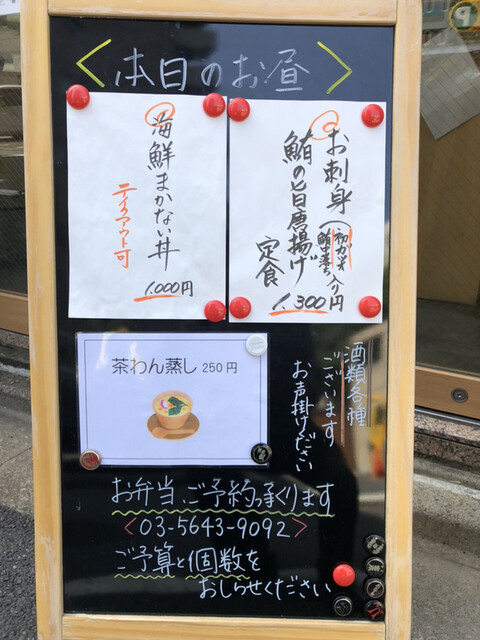 <本日のお昼>
海鮮まかない丼
テイクアウト可
1,000円
お刺身(初ガツオ
鮪中落ち入り)
鮪の旨唐揚げ
定食
1,300円
茶わん蒸し 250円
酒類各種
ございます
お声掛けください
お弁当、ご予約承ります
<03-5643-9092>
ご予算と個数を
おしらせください